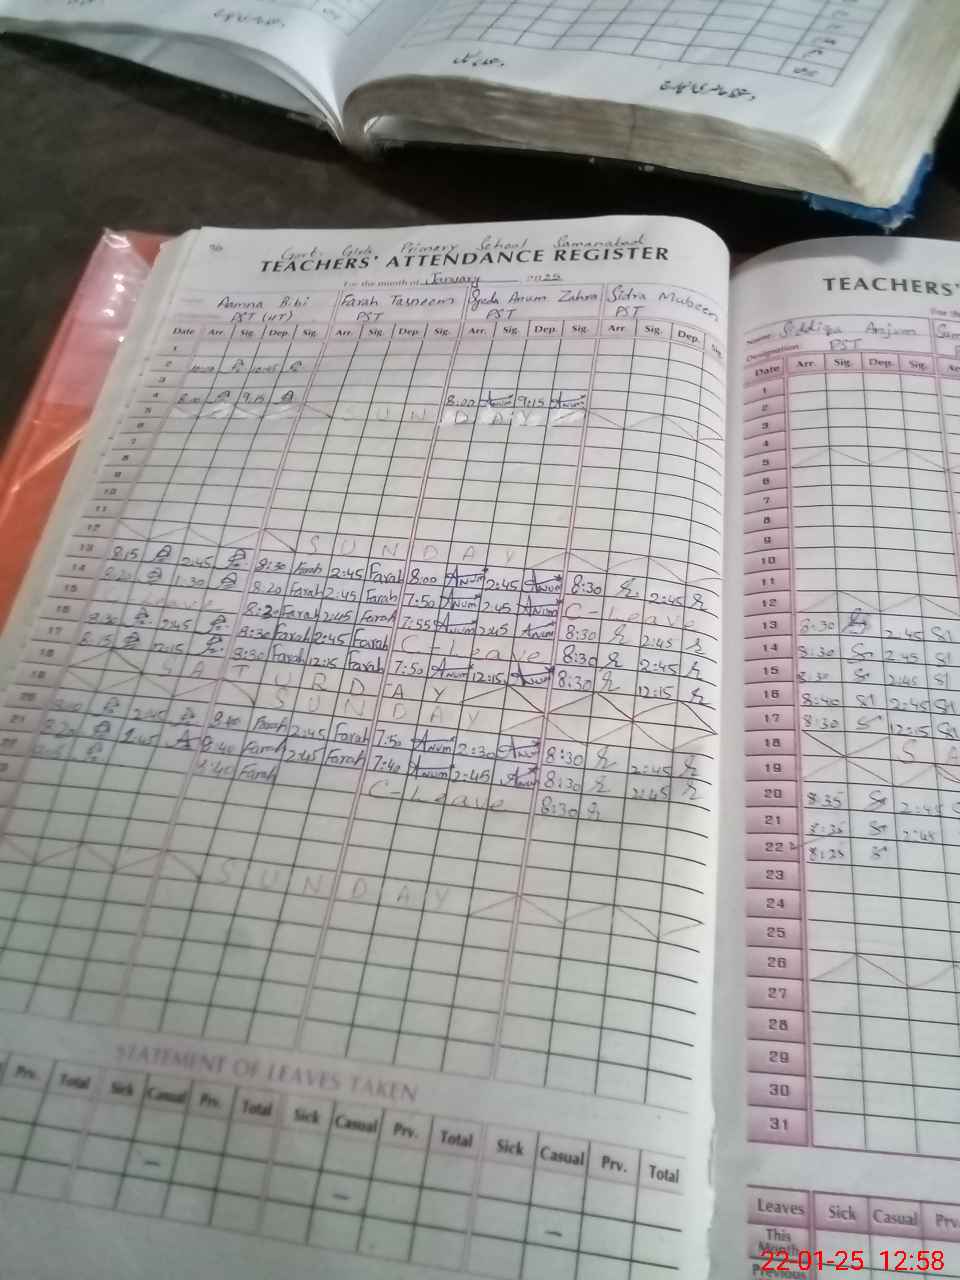 Govt. Girls Primary School Samanabad
TEACHERS' ATTENDANCE REGISTER
For the month of January 2025
Aamna Bibi Farah Tasneem Syeda Anum Zahra Sidra Mubeen
PST (HT) PST PST PST
Date Arr. Sig. Dep. Sig. Arr. Sig. Dep. Sig. Arr. Sig. Dep. Sig. Arr. Sig. Dep. Sig.
1
2 10:45
3
4 8:00 9:15 8:00 Anum 9:15 Anum
5 SUNDAY
6
7
8
9
10
11
12 SUNDAY
13 8:15 2:45 8:30 Farah 2:45 Farah 8:00 Anum 2:45 Anum 8:30 2:45
14 8:20 1:30 8:20 Farah 2:45 Farah 7:50 Anum 2:45 Anum C-Leave
15 Leave 8:20 Farah 2:45 Farah 7:55 Anum 2:45 Anum 8:30 2:45
16 8:30 2:45 8:30 Farah 2:45 Farah C-Leave 8:30 2:45
17 8:15 12:15 8:30 Farah 12:15 Farah 7:50 Anum 12:15 Anum 8:30 12:15
18 SATURDAY
19 SUNDAY
20 2:45 8:40 Farah 2:45 Farah 7:50 Anum 2:30 Anum 8:30 2:45
21 8:20 2:45 8:40 Farah 2:45 Farah 7:40 Anum 2:45 Anum 8:30 2:45
8:40 Farah C-Leave 8:30
SUNDAY
STATEMENT OF LEAVES TAKEN
Prv. Total Sick Casual Prv. Total Sick Casual Prv. Total Sick Casual Prv. Total
TEACHERS'
Name: Siddiqa Anjum
Designation: PST
Date Arr. Sig. Dep. Sig.
1
2
3
4
5
6
7
8
9
10
11
12
13 8:30 2:45
14 8:30 2:45
15 8:30 2:45
16 8:40 2:45
17 8:30 12:15
18 SA
19
20 8:35 2:45
21 8:35 2:45
22 8:25
23
24
25
26
27
28
29
30
31
Leaves Sick Casual Prv.
This Month
Previous
22-01-25 12:58